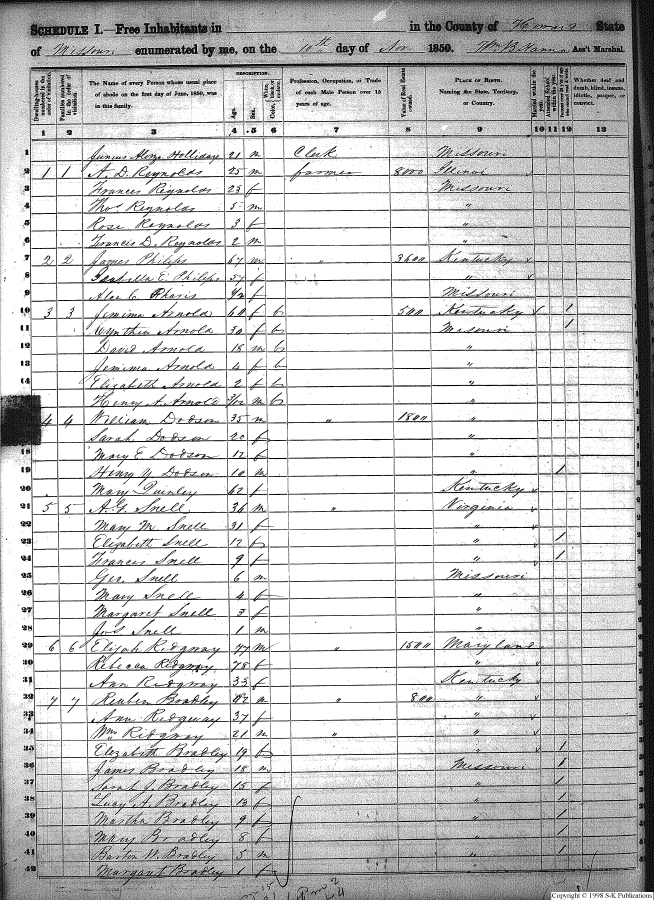 SCHEDULE I.—Free Inhabitants in in the County of Howard State
of Missouri enumerated by me, on the 10th day of Nov. 1850. Wm B Hanna Ass't Marshal.
Dwelling-houses numbered in the order of visitation.
Families numbered in the order of visitation.
The Name of every Person whose usual place of abode on the first day of June, 1850, was in this family.
DESCRIPTION.
Age.
Sex.
White, black, or mulatto.
Color,
Profession, Occupation, or Trade of each Male Person over 15 years of age.
Value of Real Estate owned.
PLACE OF BIRTH. Naming the State, Territory, or Country.
Married within the year.
Attended School within the year.
Whether deaf and dumb, blind, insane, idiotic, pauper, or convict.
1 2 3 4 5 6 7 8 9 10 11 12 13
1 Junius Alonzo Holliday 21 m Clerk Missouri
2 1 1 A. D. Reynolds 25 m farmer 8000 Illinoi
3 Frances Reynolds 23 f Missouri
4 Thos Reynolds 5 m "
5 Rose Reynolds 3 f "
6 Francis D. Reynolds 2 m "
7 2 2 James Philips 67 m " 3600 Kentucky
8 Isabella E Philips 57 f "
9 Alex C. Pharis f Missouri
10 3 3 Jemima Arnold 60 f b 500 Kentucky 1
11 Cynthia Arnold 30 f b Missouri 1
12 David Arnold 18 m b "
13 Jemima Arnold 4 f b "
14 Elizabeth Arnold 2 f b "
Henry A. Arnold 3/12 m b "
4 4 William Dodson 35 m " 1800 "
Sarah Dodson 20 f "
18 Mary E Dodson 12 f "
19 Henry Y Dodson 10 m " 1
20 Mary Quinley 62 f Kentucky
21 5 5 A. G. Snell 36 m " Virginia
22 Mary M. Snell 31 f "
23 Elizabeth Snell 12 f " 1
24 Frances Snell 9 f " 1
25 Geo. Snell 6 m Missouri
26 Mary Snell 4 f "
27 Margaret Snell 3 f "
28 Jos Snell 1 m "
29 6 6 Elijah Ridgway 77 m " 1500 Maryland
30 Rebecca Ridgway 78 f "
31 Ann Ridgway 33 f Kentucky
32 7 7 Reuben Bradley m " 800 "
33 Ann Ridgway 37 f "
34 Wm Ridgway 21 m " "
35 Elizabeth Bradley 19 f " 1
36 James Bradley 18 m Missouri 1
37 Sarah J. Bradley 15 f " 1
38 Lucy A. Bradley 13 f " 1
39 Martha Bradley 9 f " 1
40 Mary Bradley 8 f " 1
41 Barton W. Bradley 5 m " 1
42 Margaret Bradley 1 f "
Copyright © 1998 S-K Publications